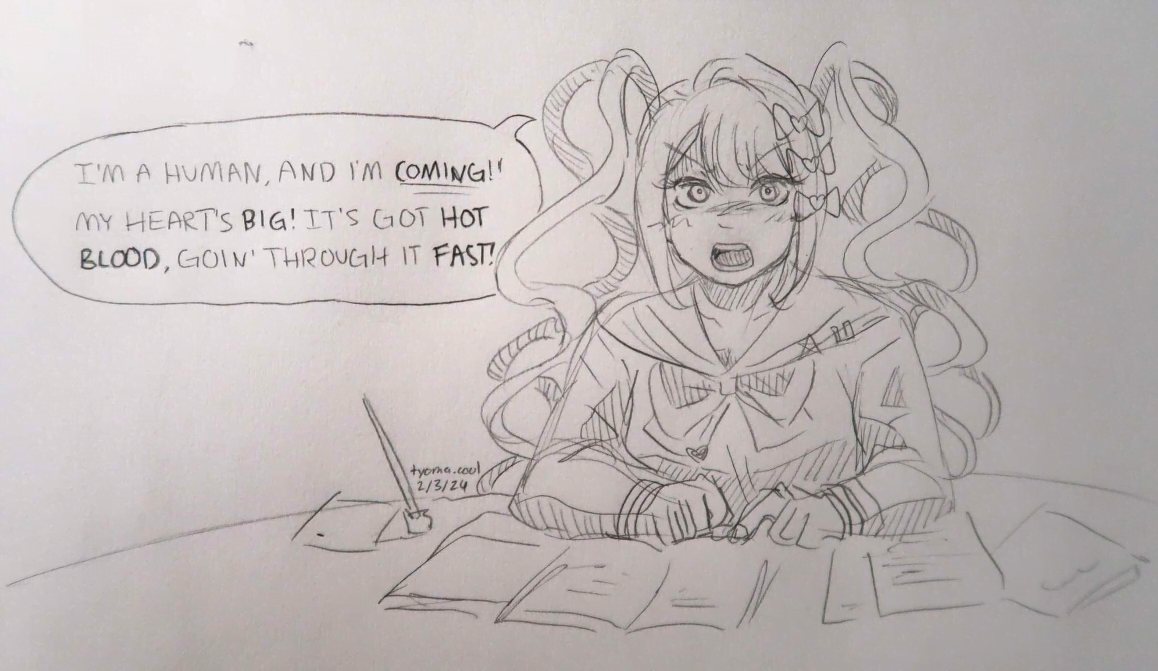 I'M A HUMAN, AND I'M COMING!!
MY HEART'S BIG! IT'S GOT HOT
BLOOD, GOIN' THROUGH IT FAST!
tyoma.cowl
2/3/24